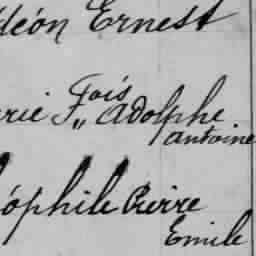 déon Ernest
rie Fois Adolphe
Antoine
ophile Pierre
Emile